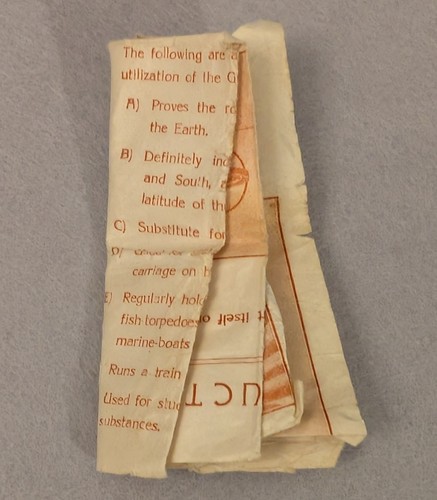 The following are a
utilization of the G
A) Proves the ro
the Earth.
B) Definitely ind
and South, a
latitude of th
C) Substitute for
D)
carriage on
E) Regularly hold
fish-torpedoes
marine-boats
Runs a train
Used for stud
substances.
t itself o
UCT